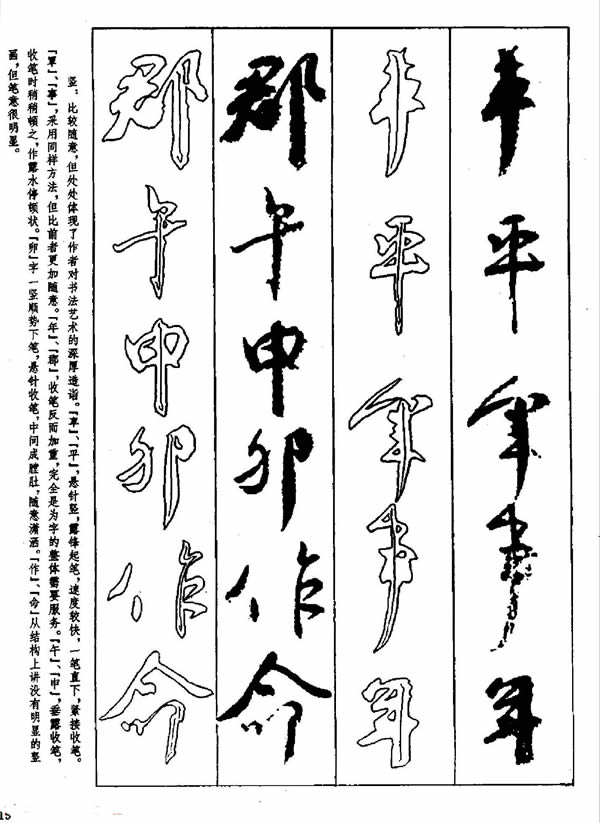 草平覃事年
草平覃事年
郡午申卯作命
郡午申卯作命
竖：比较随意，但处处体现了作者对书法艺术的深厚造诣。『草』、『平』，悬针竖，露锋起笔，速度较快，一笔直下，紧接收笔。
『覃』、『事』，采用同样方法，但比前者更加随意。『年』、『郡』，收笔反而加重，完全是为字的整体需要服务。『午』、『申』，垂露收笔，
收笔时稍稍顿之，作露水停顿状。『卯』字一竖顺势下笔，悬针收笔，中间成膛肚，随意潇洒。『作』、『命』从结构上讲没有明显的竖
画，但笔意很明显。
15